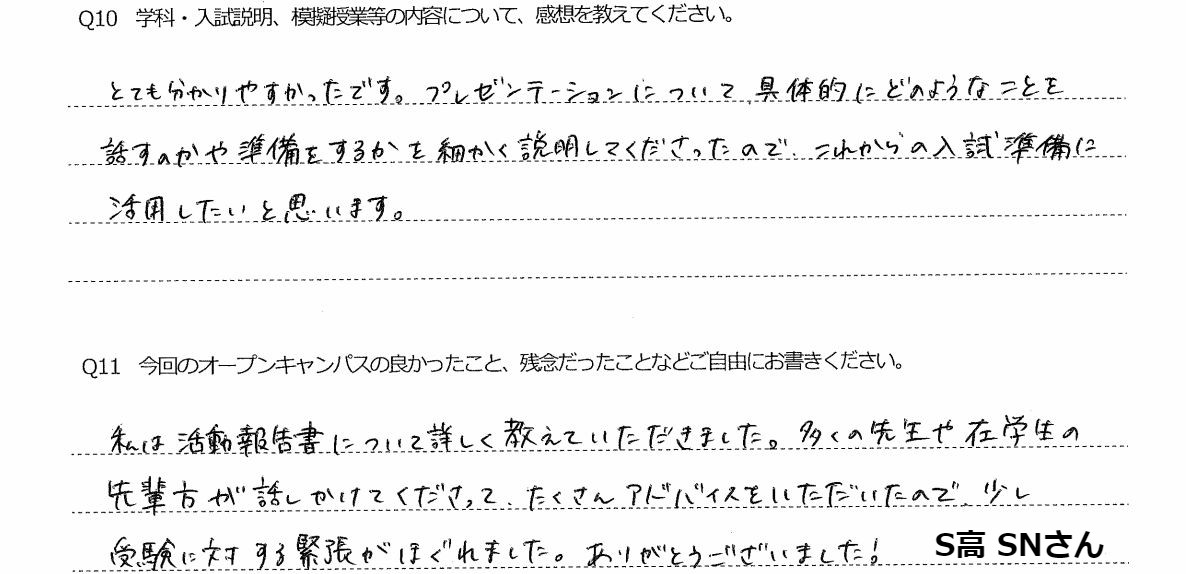 Q10 学科・入試説明、模擬授業等の内容について、感想を教えてください。
とても分かりやすかったです。プレゼンテーションについて、具体的にどのようなことを
話すのかや準備をするかを細かく説明してくださったので、これからの入試準備に
活用したいと思います。
Q11 今回のオープンキャンパスの良かったこと、残念だったことなどご自由にお書きください。
私は活動報告書について詳しく教えていただきました。多くの先生や在学生の
先輩方が話しかけてくださって、たくさんアドバイスをいただいたので、少し
受験に対する緊張がほぐれました。ありがとうございました!
S高 SNさん